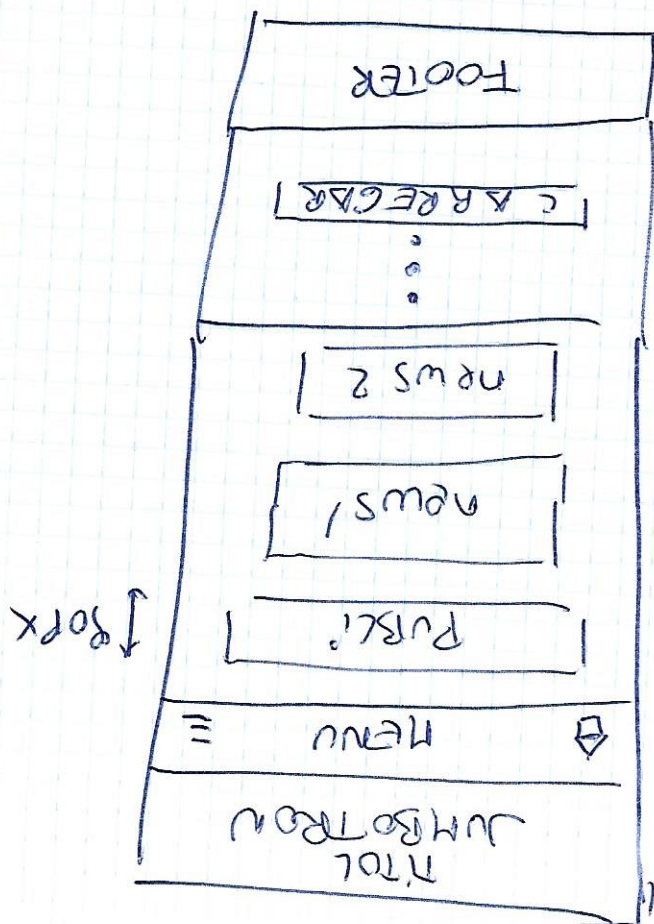 TÍTOL
JUMBOTRON
MENU
PUBLI
news 1
news 2
CARREGAR
FOOTER